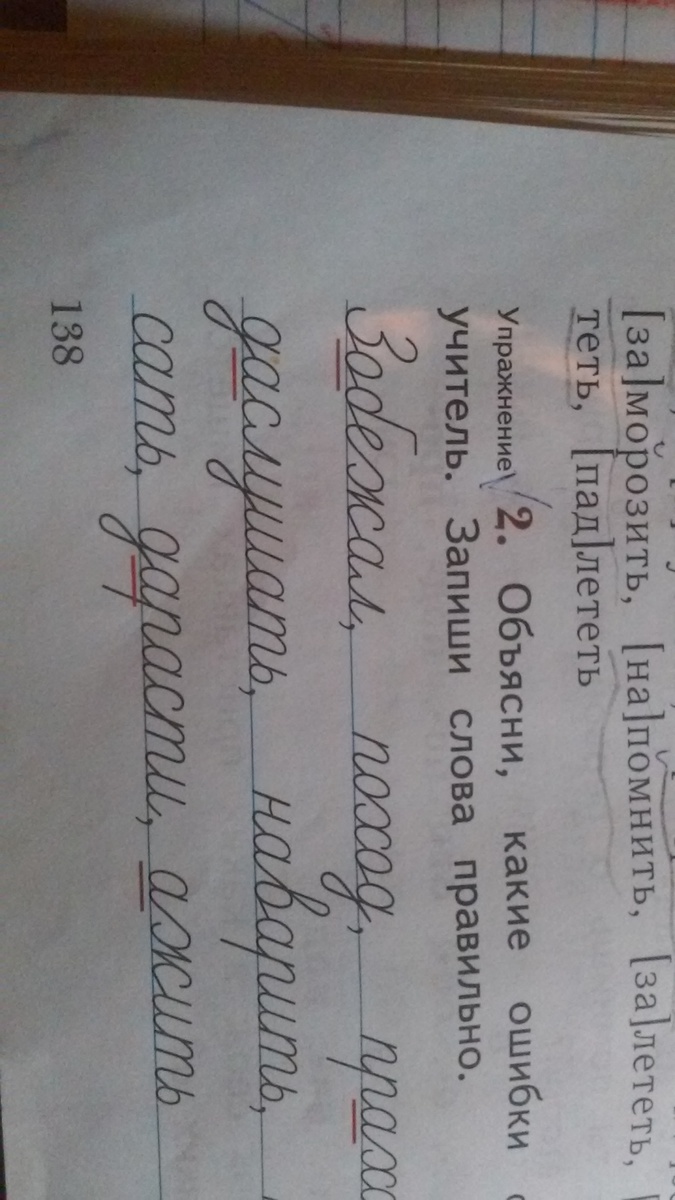 [за]морозить, [на]помнить, [за]лететь,
теть, [пад]лететь
Упражнение 2. Объясни, какие ошибки
учитель. Запиши слова правильно.
Зобежал, поход,
даслушать, наварить,
сать, дарасти, ажить
138